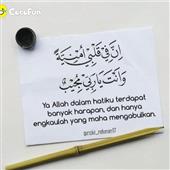 CeruFun
إِنَّ فِي قَلْبِي أُمْنِيَّةً
وَأَنْتَ يَا رَبِّي مُجِيبٌ
Ya Allah dalam hatiku terdapat
banyak harapan, dan hanya
engkaulah yang maha mengabulkan.